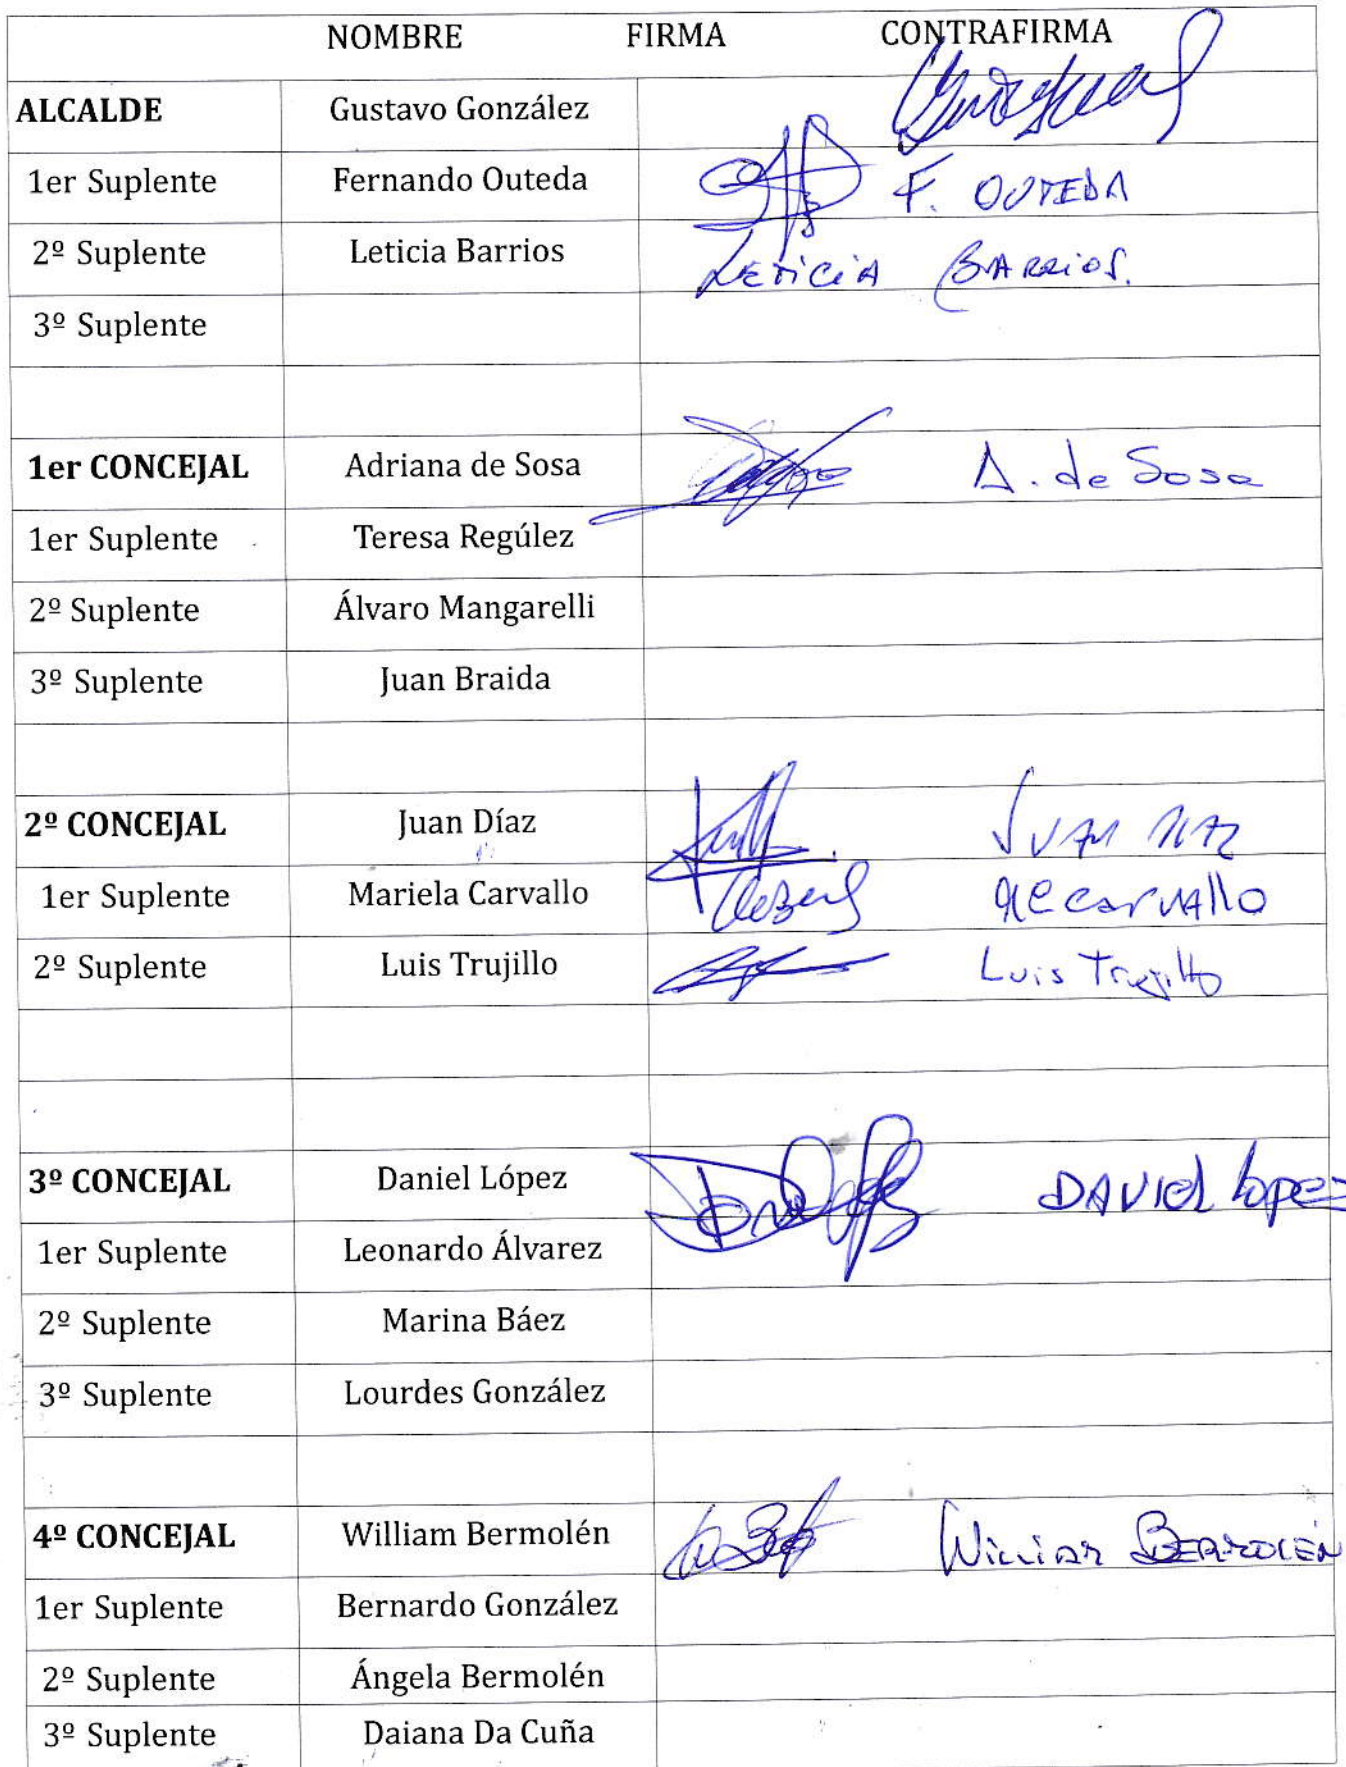 NOMBRE FIRMA CONTRAFIRMA
ALCALDE Gustavo González
1er Suplente Fernando Outeda F. OUTEDA
2º Suplente Leticia Barrios LETICIA BARRIOS.
3º Suplente
1er CONCEJAL Adriana de Sosa A. de Sosa
1er Suplente Teresa Regúlez
2º Suplente Álvaro Mangarelli
3º Suplente Juan Braida
2º CONCEJAL Juan Díaz JUAN DIAZ
1er Suplente Mariela Carvallo Carvallo
2º Suplente Luis Trujillo Luis Trujillo
3º CONCEJAL Daniel López DANIEL lopez
1er Suplente Leonardo Álvarez
2º Suplente Marina Báez
3º Suplente Lourdes González
4º CONCEJAL William Bermolén William BERMOLEN
1er Suplente Bernardo González
2º Suplente Ángela Bermolén
3º Suplente Daiana Da Cuña